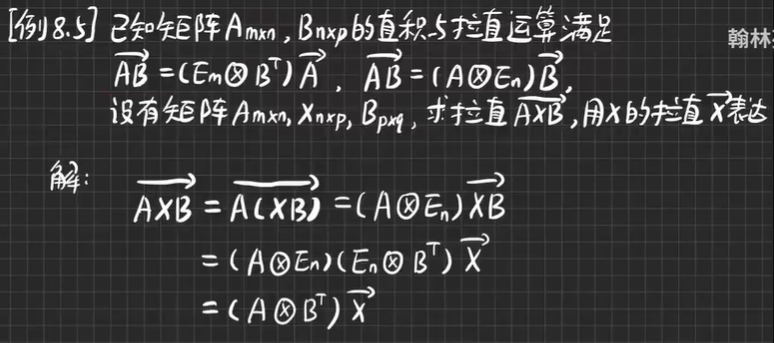 [例8.5] 已知矩阵Amxn,Bnxp的直积与拉直运算满足
翰林
\overrightarrow{AB}=(Em⊗Bᵀ)\overrightarrow{A},\overrightarrow{AB}=(A⊗En)\overrightarrow{B},
设有矩阵Amxn,Xnxp,Bpxq,求拉直\overrightarrow{AXB},用X的拉直\overrightarrow{X}表达
解:
\overrightarrow{AXB}=\overrightarrow{A(XB)}=(A⊗En)\overrightarrow{XB}
=(A⊗En)(En⊗Bᵀ)\overrightarrow{X}
=(A⊗Bᵀ)\overrightarrow{X}